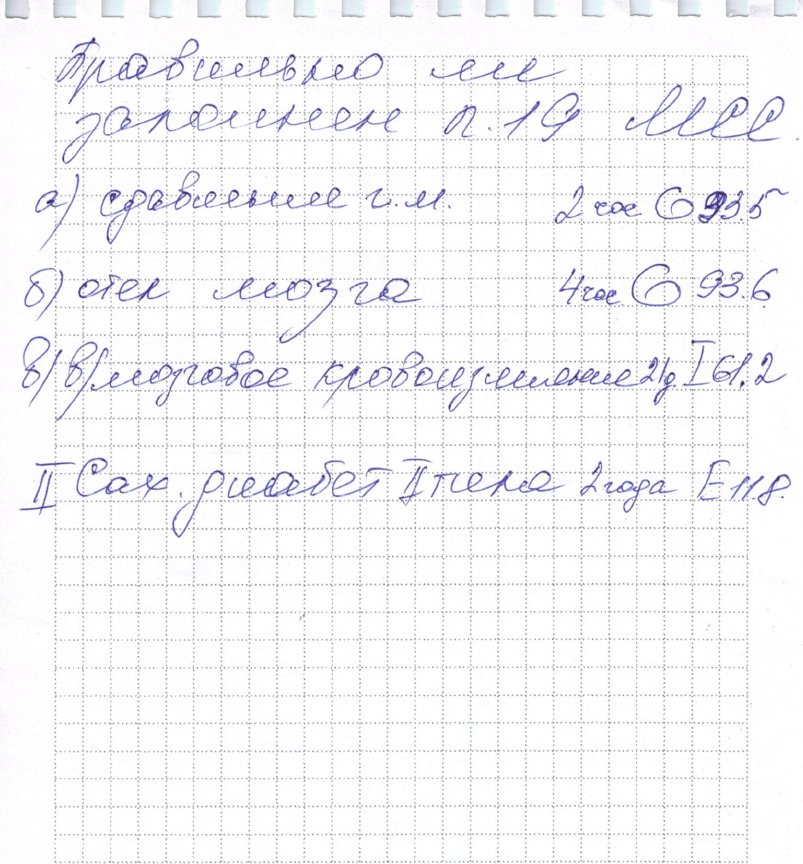 Правильно ли
заполнен п.19 МСС.
а) сдавление г.м. 2 час G 93.5
б) отек мозга 4 час G 93.6
в) в/мозговое кровоизлияние 2 д. I 61.2
II Сах. диабет II типа 2 года E 11.8.